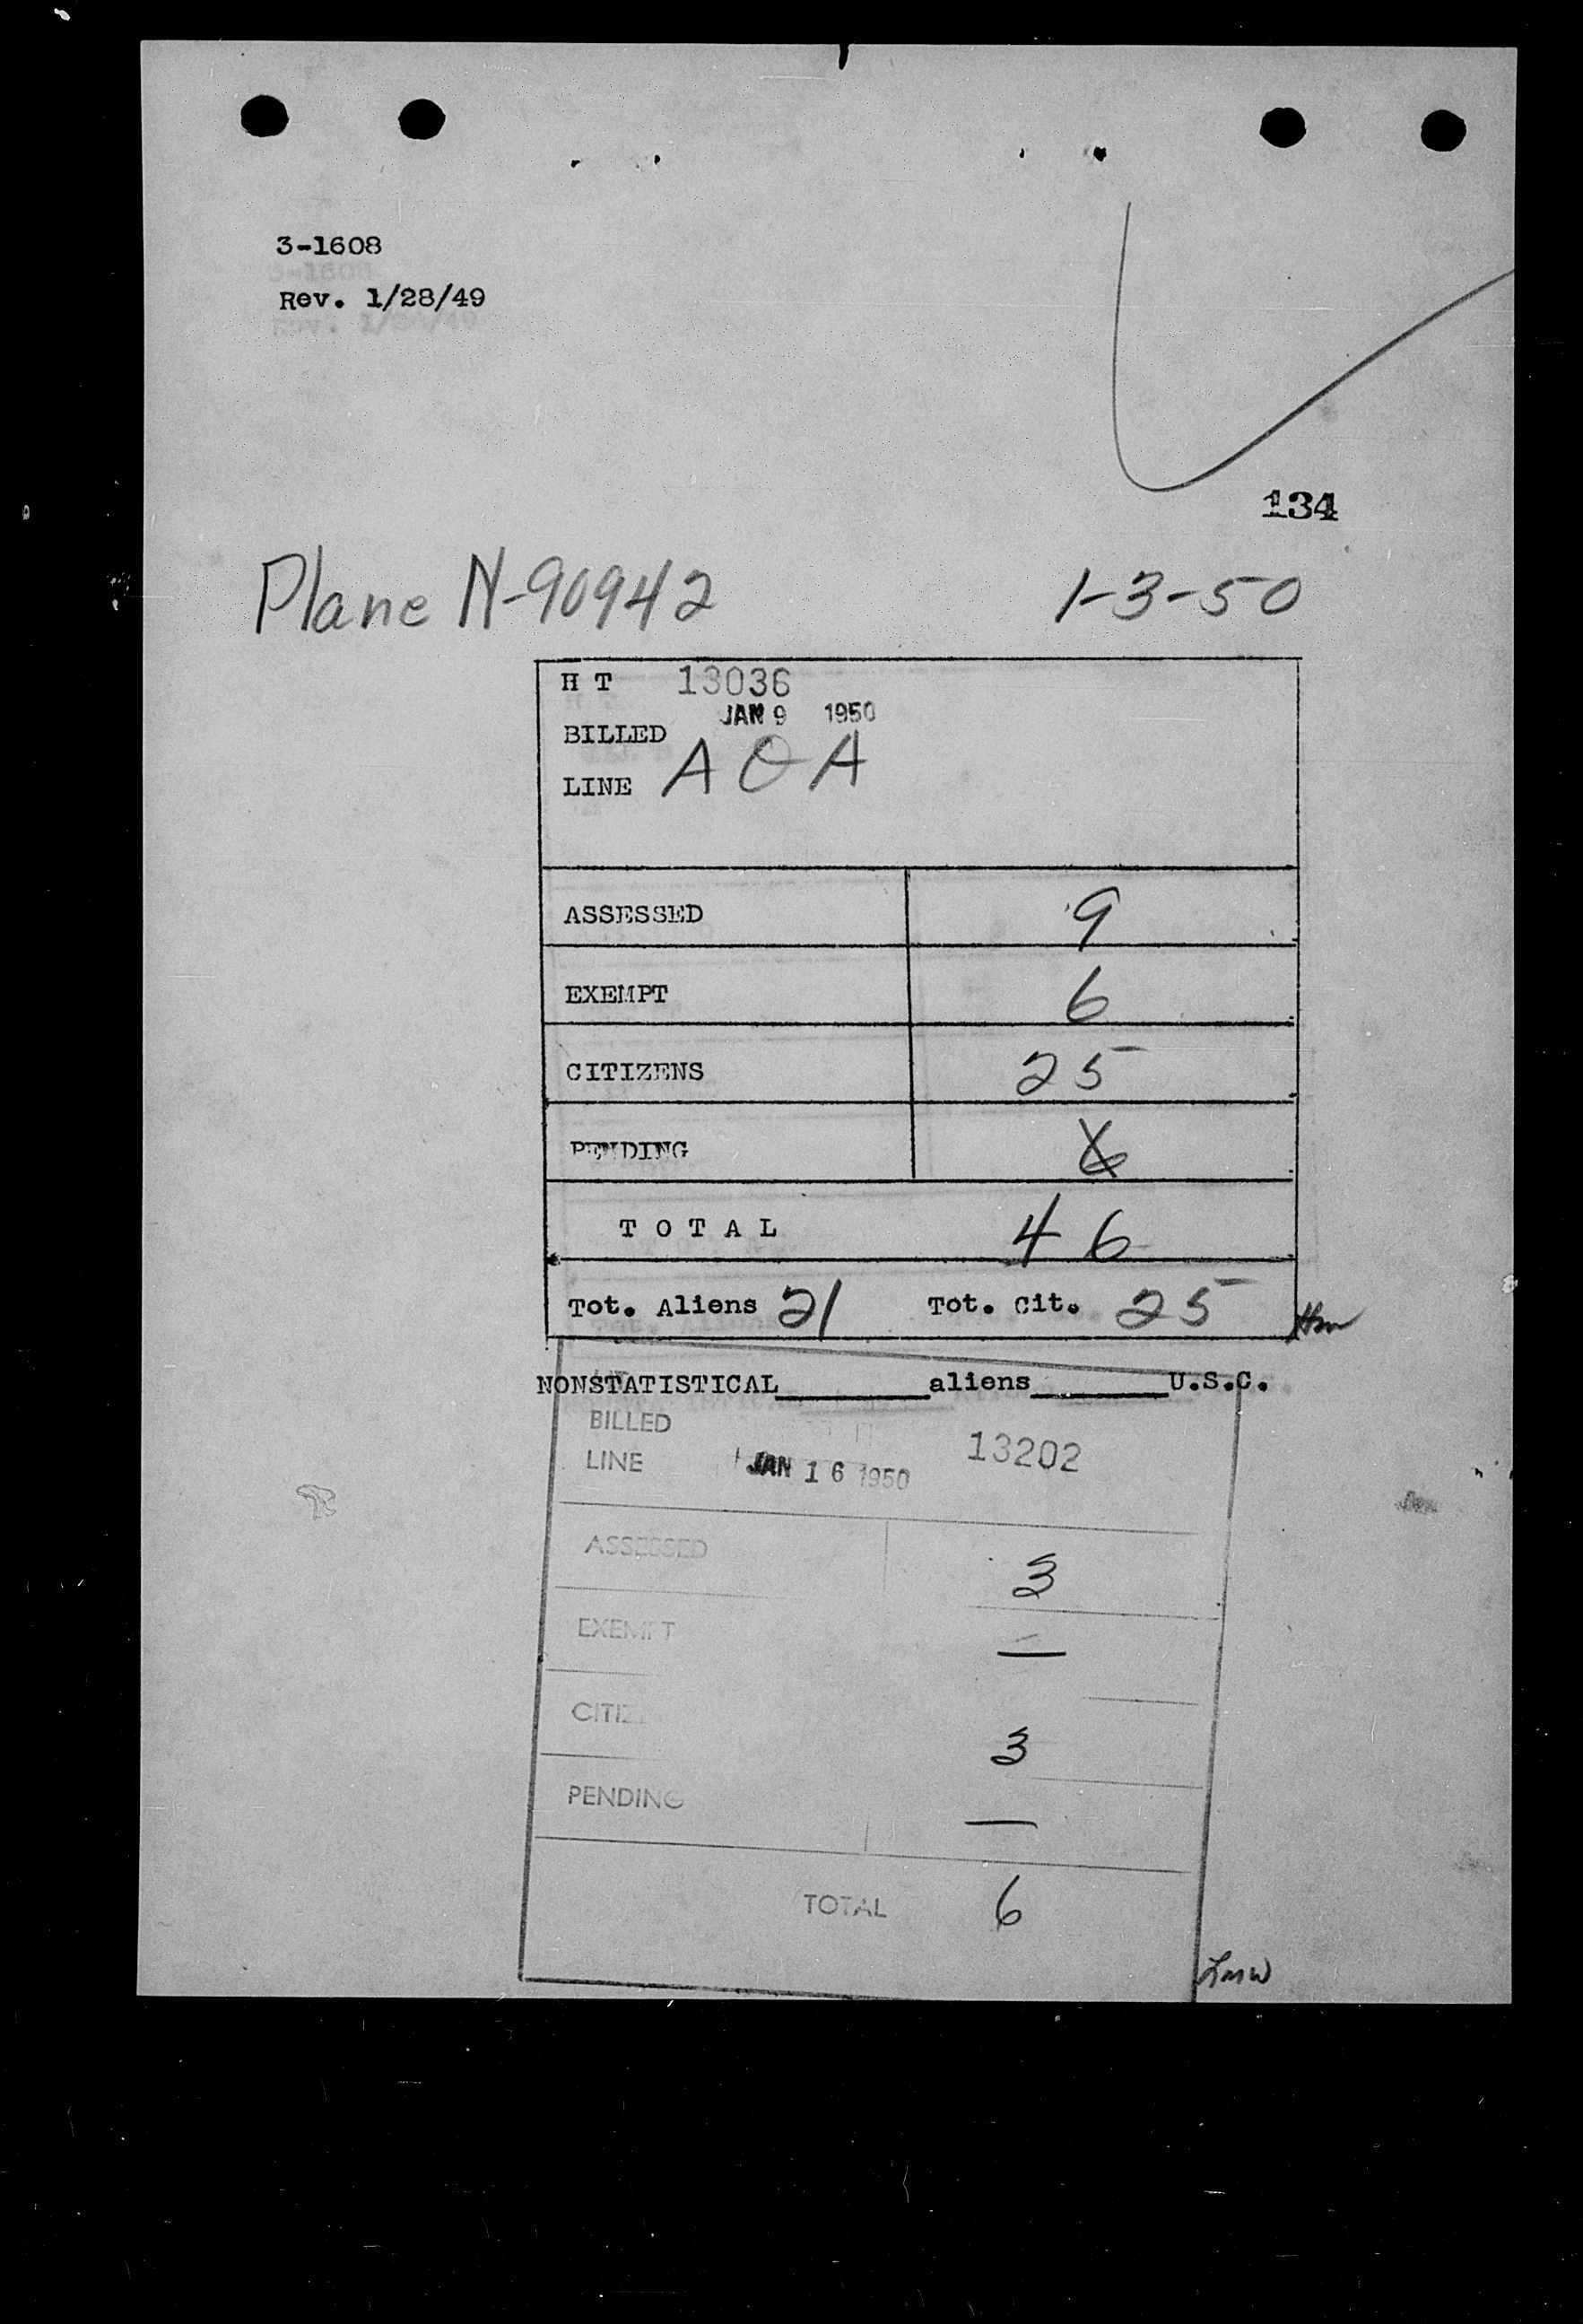 3-1608
Rev. 1/28/49
134
Plane N-90942 1-3-50
H T 13036
JAN 9 1950
BILLED
LINE A O A
ASSESSED 9
EXEMPT 6
CITIZENS 25
PENDING 6
T O T A L 46
Tot. Aliens 21 Tot. Cit. 25
NONSTATISTICAL________aliens_______U.S.C.
BILLED
LINE JAN 16 1950 13202
ASSESSED 3
EXEMPT —
CITIZ 3
PENDING —
TOTAL 6